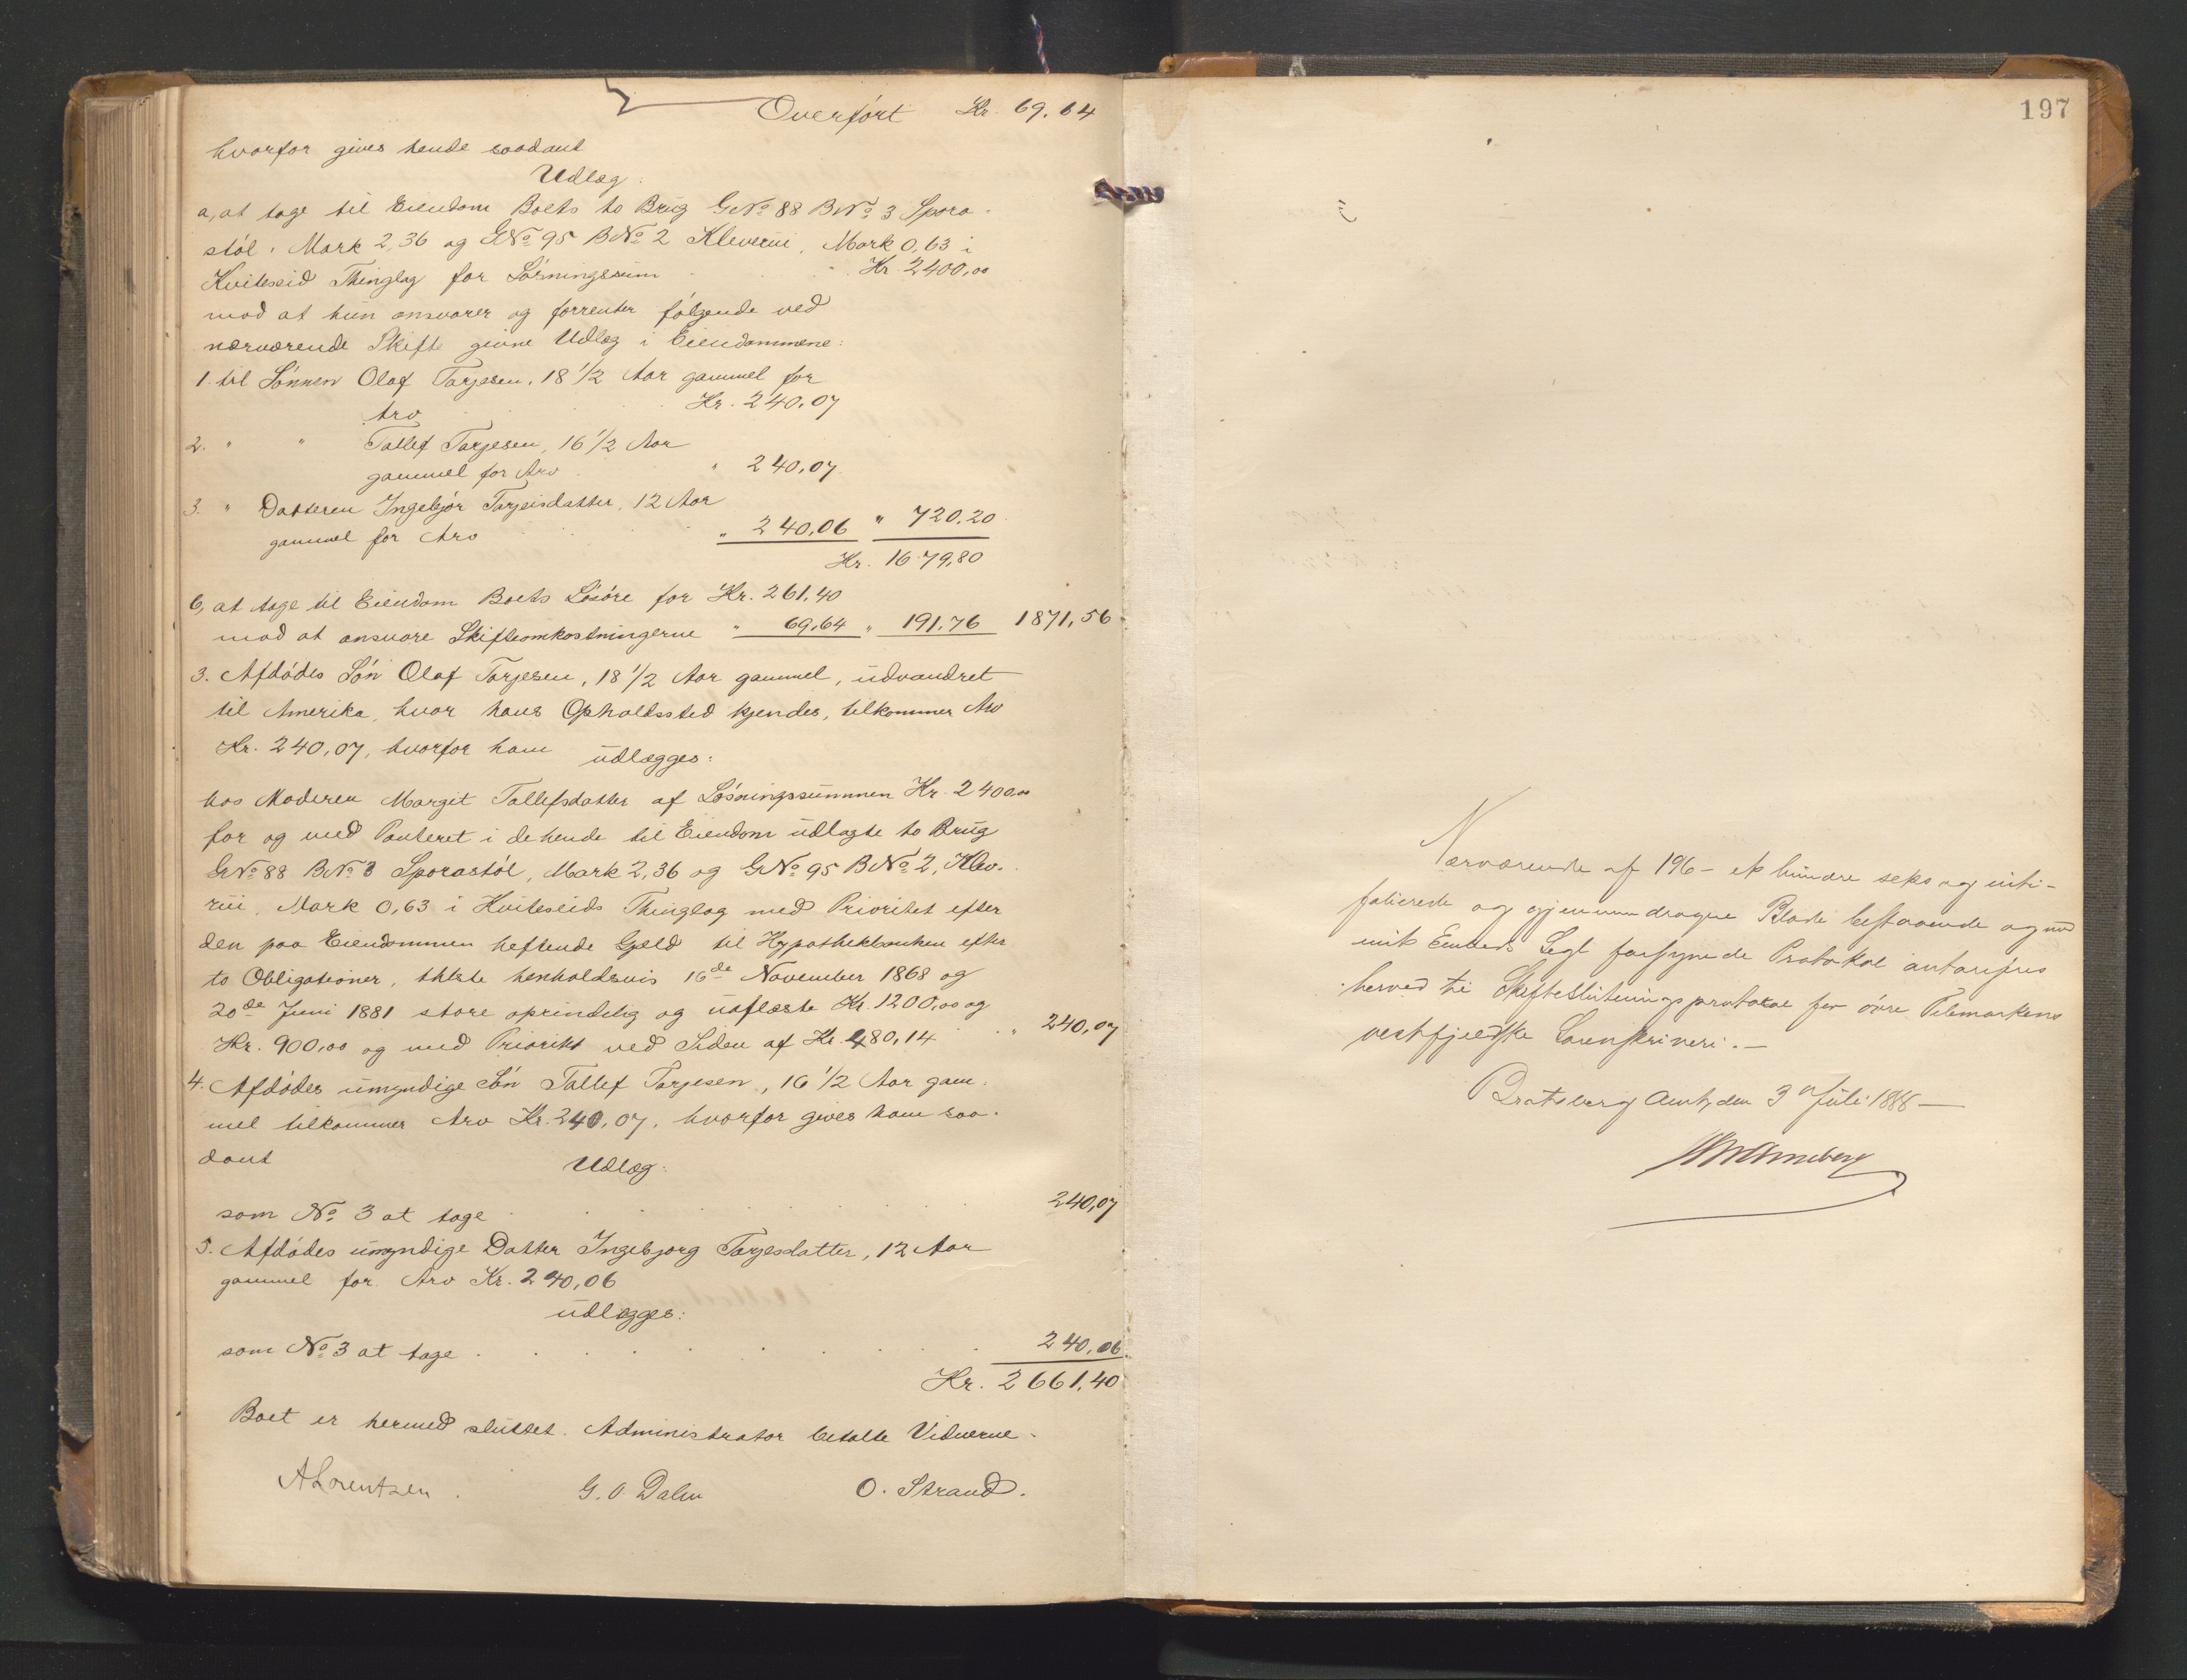 Overført Kr. 69.64
hvorfor gives hende saadant
Udlæg:
a, at tage til Eiendom Boets to Brug GNo 88 BNo 3 Spora-
støl, Mark 2,36 og GNo 95 BNo 2 Kleverui, Mark 0,63 i
Kviteseid Thinglag for Løsningssum Kr. 2400,00
mod at hun ansvarer og forrenter følgende ved
nærværende Skifte givne Udlæg i Eiendommene:
1. til Sønnen Olaf Tarjesen, 18 1/2 Aar gammel for
Arv Kr. 240,07
2. " " Tallef Tarjesen, 16 1/2 Aar
gammel for Arv " 240,07
3. " Datteren Ingebjør Tarjeisdatter, 12 Aar
gammel for Arv " 240,06 " 720,20
Kr. 1679,80
b, at tage til Eiendom Boets Løsøre for Kr. 261,40
mod at ansvare Skifteomkostningerne " 69,64 " 191,76 1871,56
3. Afdødes Søn Olaf Tarjesen, 18 1/2 Aar gammel, udvandret
til Amerika, hvor hans Opholdssted kjendes, tilkommer Arv
Kr. 240,07, hvorfor ham udlægges:
hos Moderen Margit Tallefsdatter af Løsningssummen Kr. 2400,00
for og med Panteret i de hende til Eiendom udlagte to Brug
GNo 88 BNo 3 Sporastøl, Mark 2,36 og GNo 95 BNo 2, Klev-
rui, Mark 0,63 i Kviteseids Thinglag med Prioritet efter
den paa Eiendommen heftende Gjeld til Hypothekbanken efter
to Obligationer, thlste henholdsvis 16de November 1868 og
20de Juni 1881 store oprindelig og uaflæste Kr. 1200,00 og
Kr. 900,00 og med Prioritet ved Siden af Kr. 480,14 " 240,07
4. Afdødes umyndige Søn Tallef Tarjesen, 16 1/2 Aar gam-
mel tilkommer Arv Kr. 240,07, hvorfor gives ham saa-
dant Udlæg:
som No 3 at tage 240,07
5. Afdødes umyndige Datter Ingebjørg Tarjesdatter, 12 Aar
gammel for Arv Kr. 240,06
udlægges:
som No 3 at tage 240,06
Kr. 2661,40
Boet er hermed sluttet. Administrator betalte Vidnerne.
A Lorentzen. G. O. Dalen O. Strand.
197
Nærværende af 196 - et hundre seks og nitti -
folierede og gjennemdragne Blade bestaaende og med
mit Embeds Segl forsynede Protokol autoriseres
herved til Skifteslutningsprotokol for øvre Telemarkens
vestfjeldske Sorenskriveri. -
Bratsberg Amt, den 3 Juli 1888 -